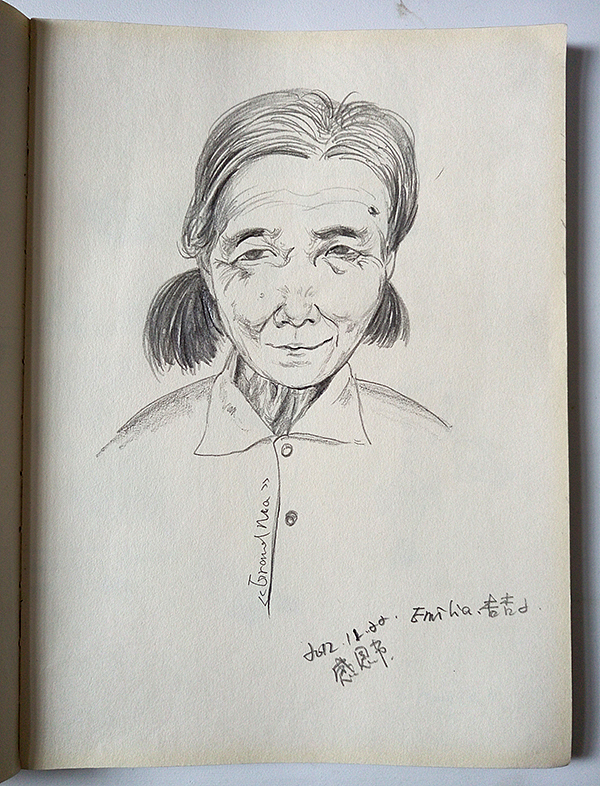 <<Grand Nea>>
2012.11.22. Emilia.
感恩节.